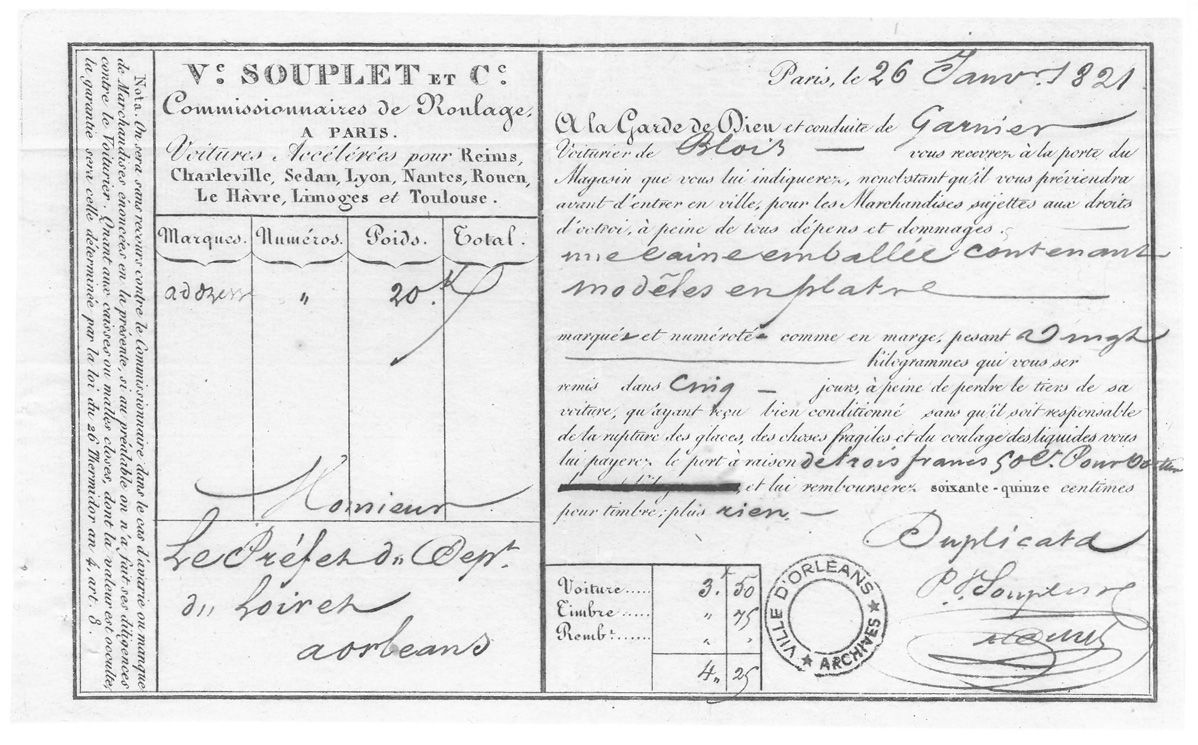 Nota. On sera sans recours contre le Commissionnaire dans le cas d'avarie ou manque
de Marchandises énoncées en la présente, si au préalable on n'a fait ses diligences
contre le Voiturier. Quant aux caisses ou malles closes, dont la valeur est occulte,
la garantie sera celle déterminée par la loi du 26 Thermidor an 4, art. 8.
Ve. SOUPLET ET Ce.
Commissionnaires de Roulage,
A PARIS.
Voitures Accélérées pour Reims,
Charleville, Sedan, Lyon, Nantes, Rouen,
Le Hàvre, Limoges et Toulouse.
Marques. Numéros. Poids. Total.
addresse " 20.k
Monsieur
Le Préfet du Dept.
du Loiret
a orleans
Paris, le 26 Janvr. 1821
A la Garde de Dieu et conduite de Garnier
Voiturier de Blois — vous recevrez à la porte du
Magasin que vous lui indiquerez, nonobstant qu'il vous préviendra
avant d'entrer en ville, pour les Marchandises sujettes aux droits
d'octroi, à peine de tous dépens et dommages.
une caisse emballée contenant
modèles en platre
marqués et numérotés comme en marge, pesant Vingt
kilogrammes qui vous ser
remis dans Cinq — jours, à peine de perdre le tiers de sa
voiture; qu'ayant reçu bien conditionné sans qu'il soit responsable
de la rupture des glaces, des choses fragiles et du coulage des liquides vous
lui payerez le port à raison de trois francs 50 Cs. Pour Voiture
et lui rembourserez soixante-quinze centimes
pour timbre; plus rien. —
Duplicata
Voiture..... 3.f 50
Timbre..... " 75
Rembt...... " "
4" 25
VILLE D'ORLÉANS
★ ARCHIVES ★